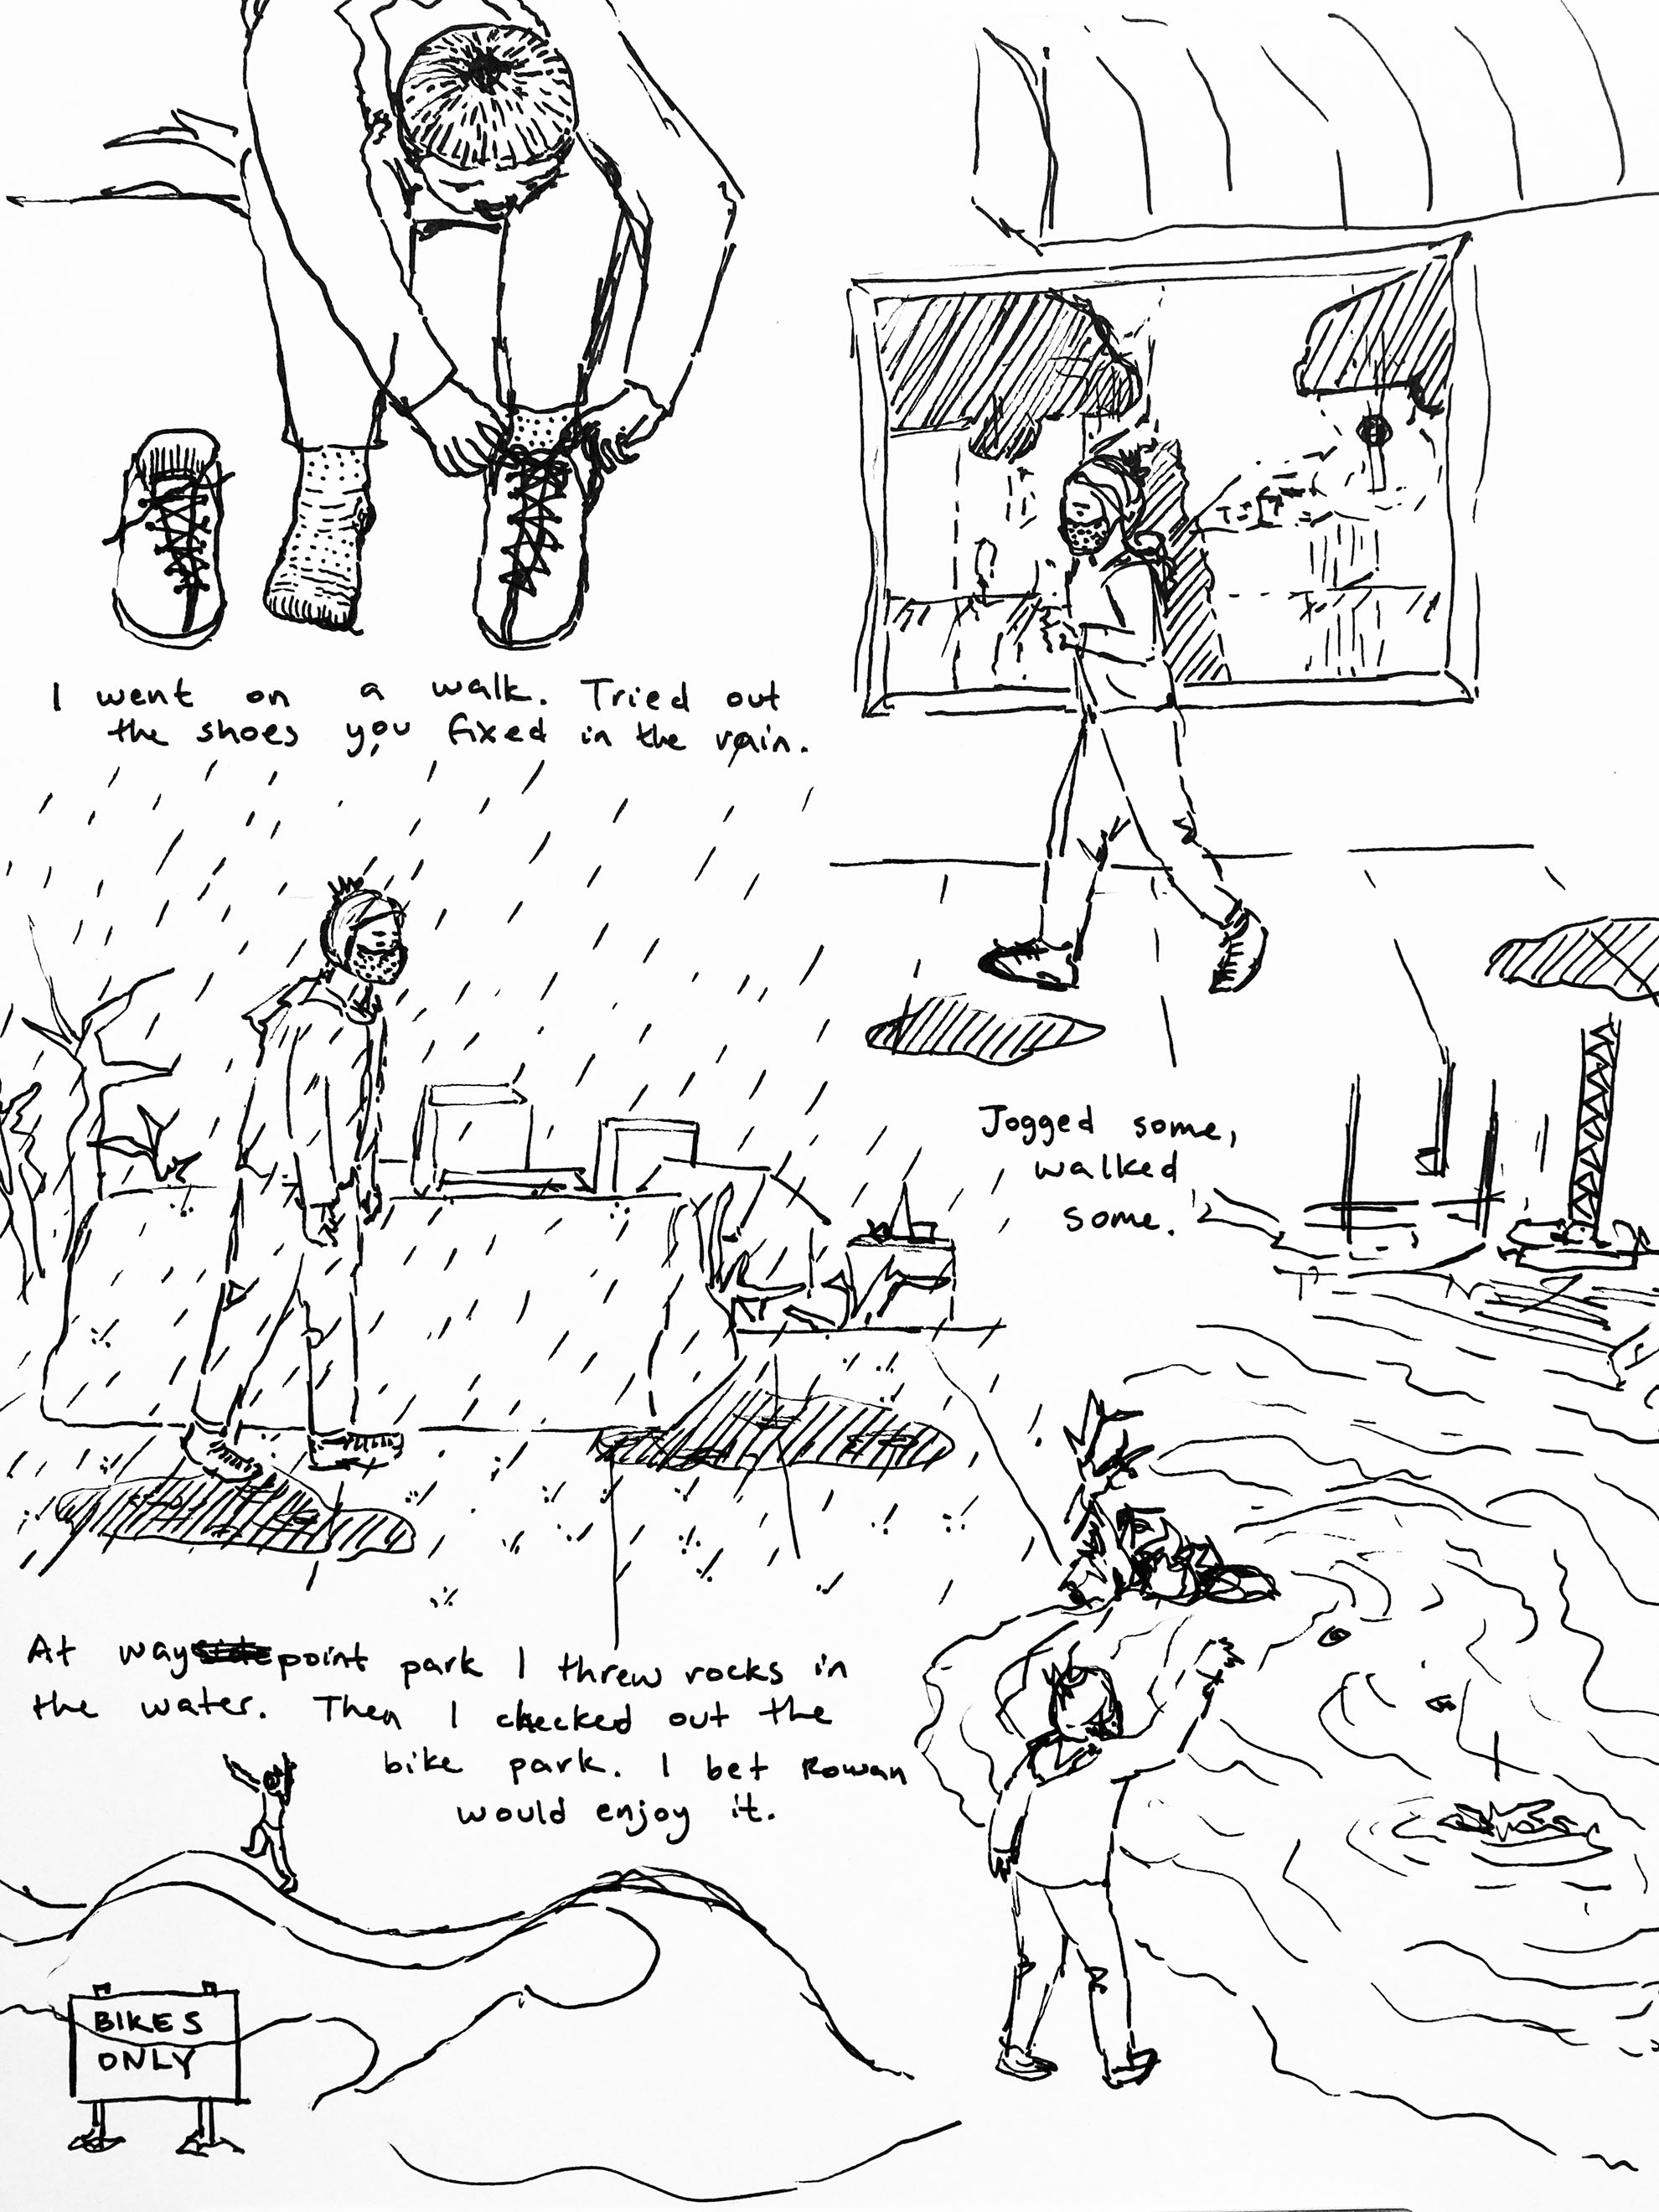 I went on a walk. Tried out
the shoes you fixed in the rain.
Jogged some,
walked
some.
At waypoint park I threw rocks in
the water. Then I checked out the
bike park. I bet Rowan
would enjoy it.
BIKES
ONLY